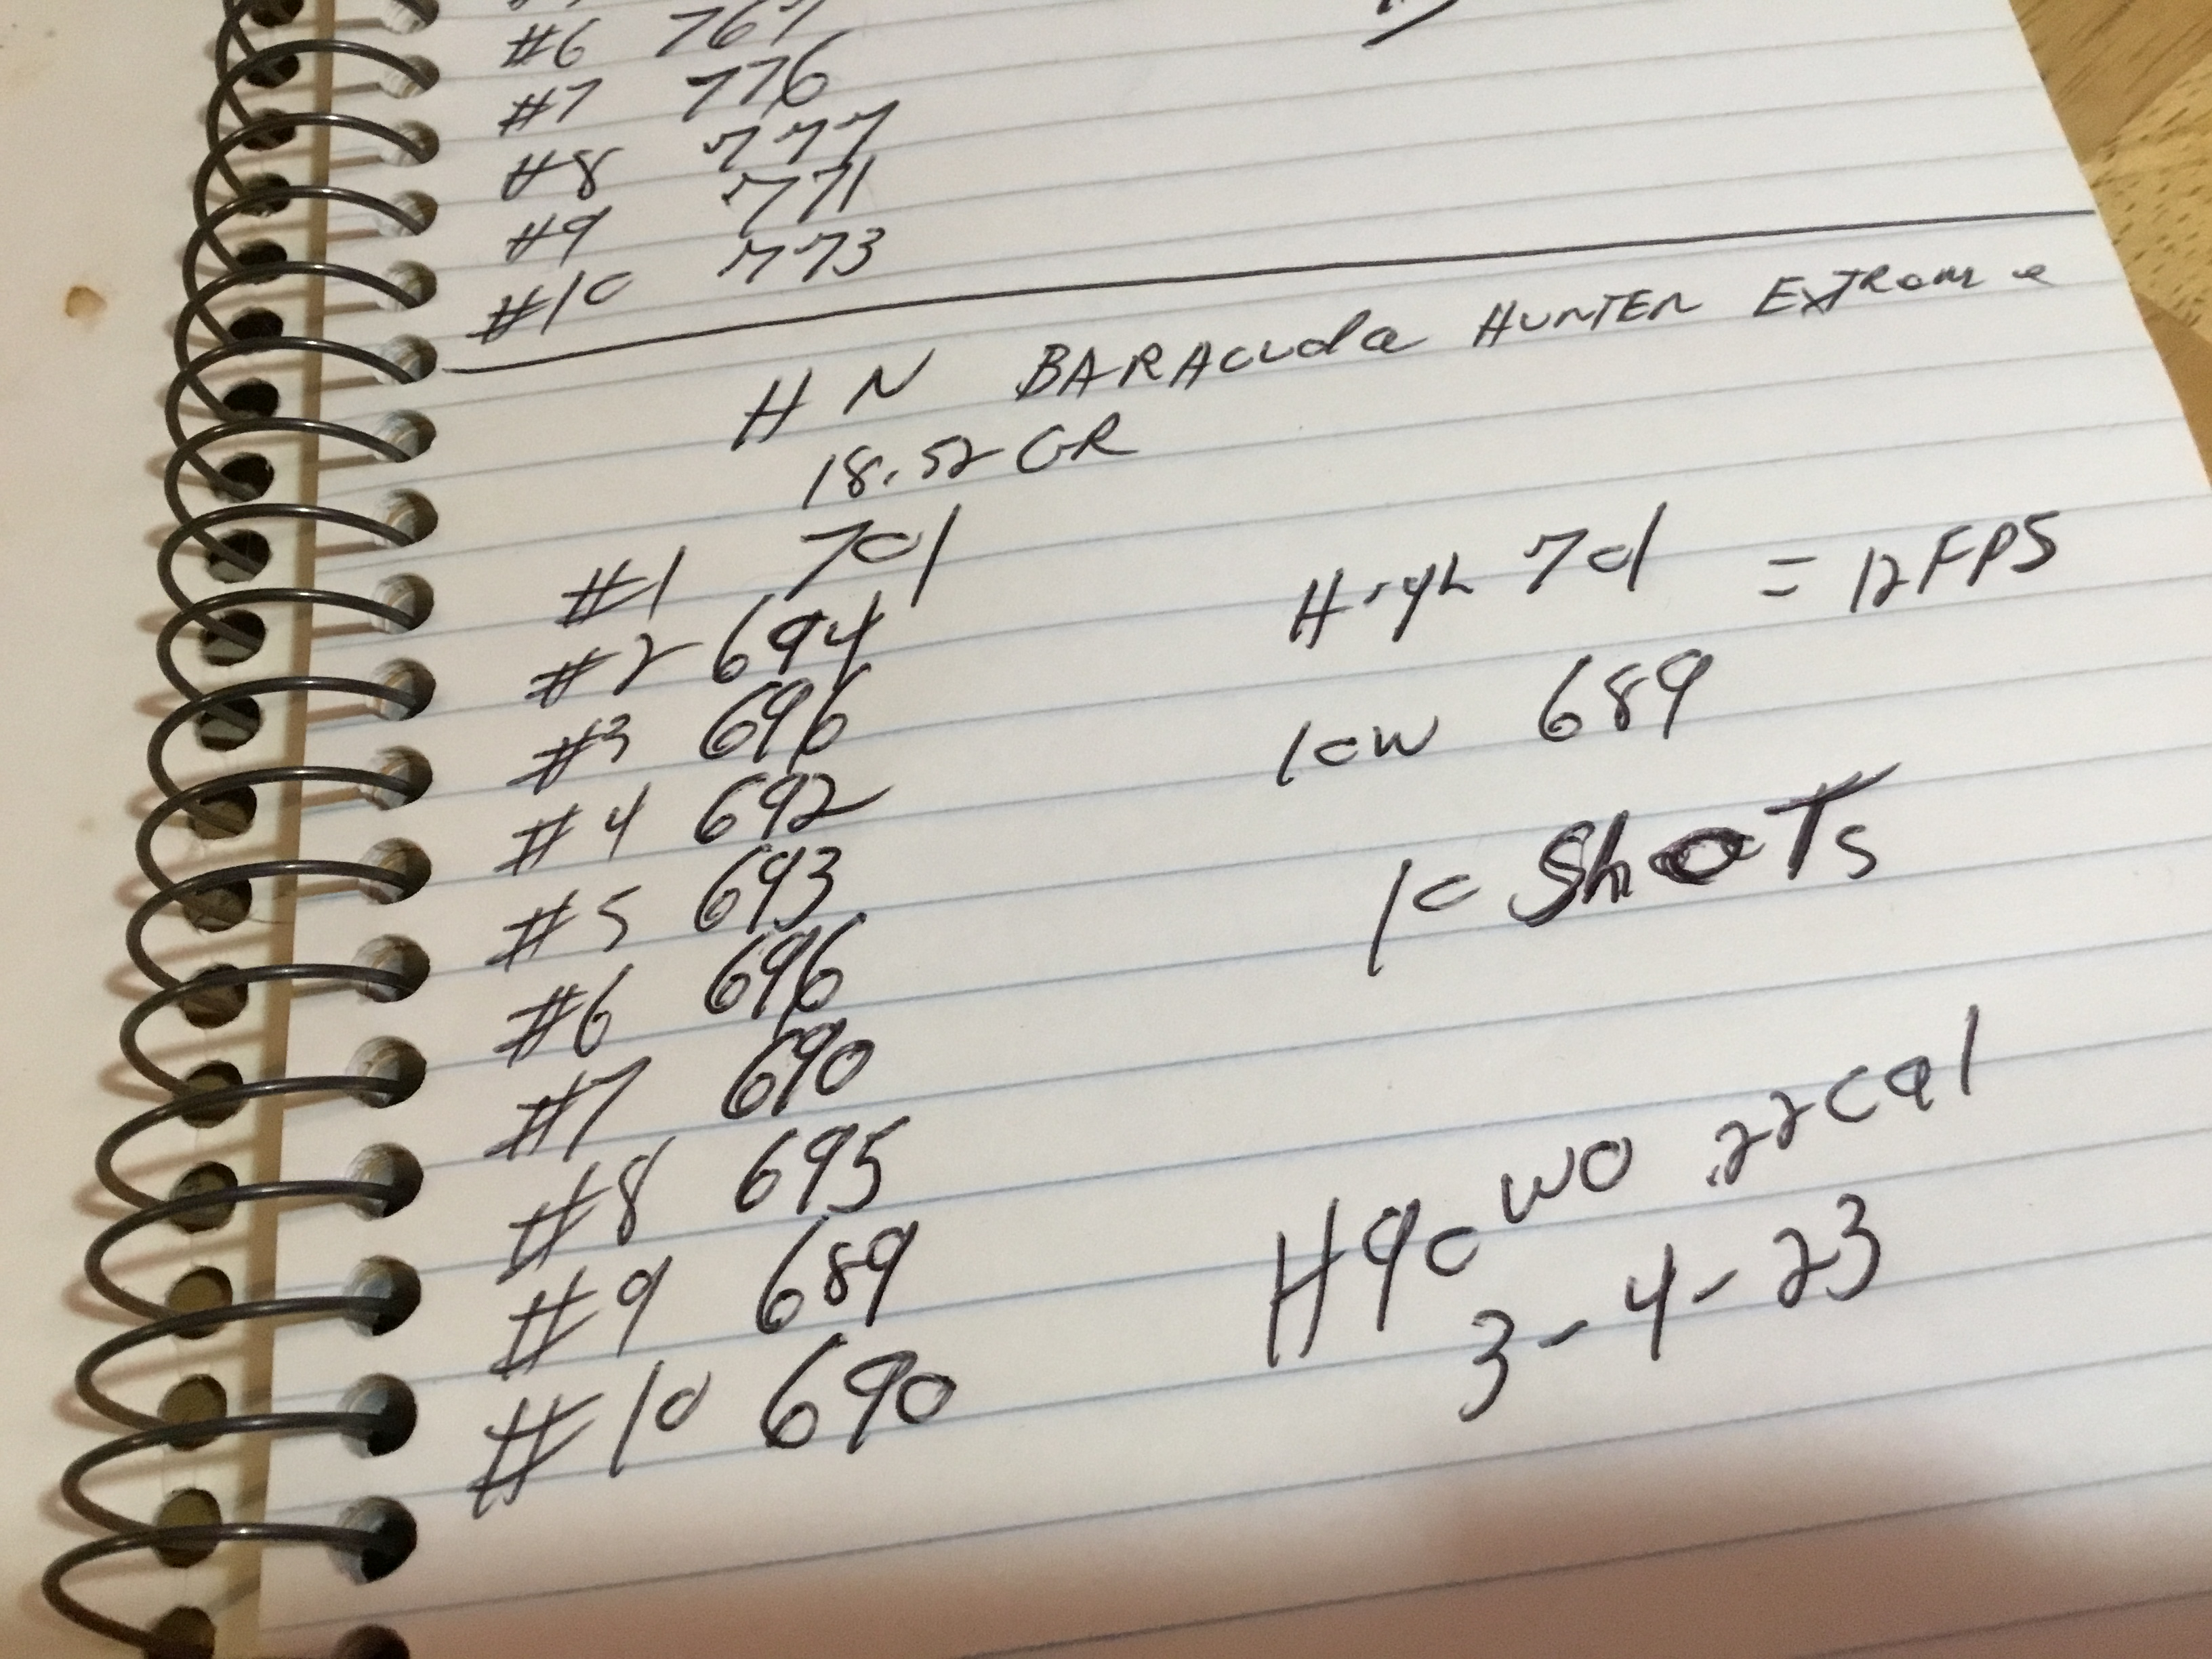 #6 767
#7 776
#8 777
#9 771
#10 773
HN BARAcuda HUNTER EXTREME
18.52 GR
#1 701
#2 694
#3 696
#4 692
#5 693
#6 696
#7 690
#8 695
#9 689
#10 690
High 701 = 12 FPS
low 689
10 ShoTs
H90 WO .22 cal
3-4-23